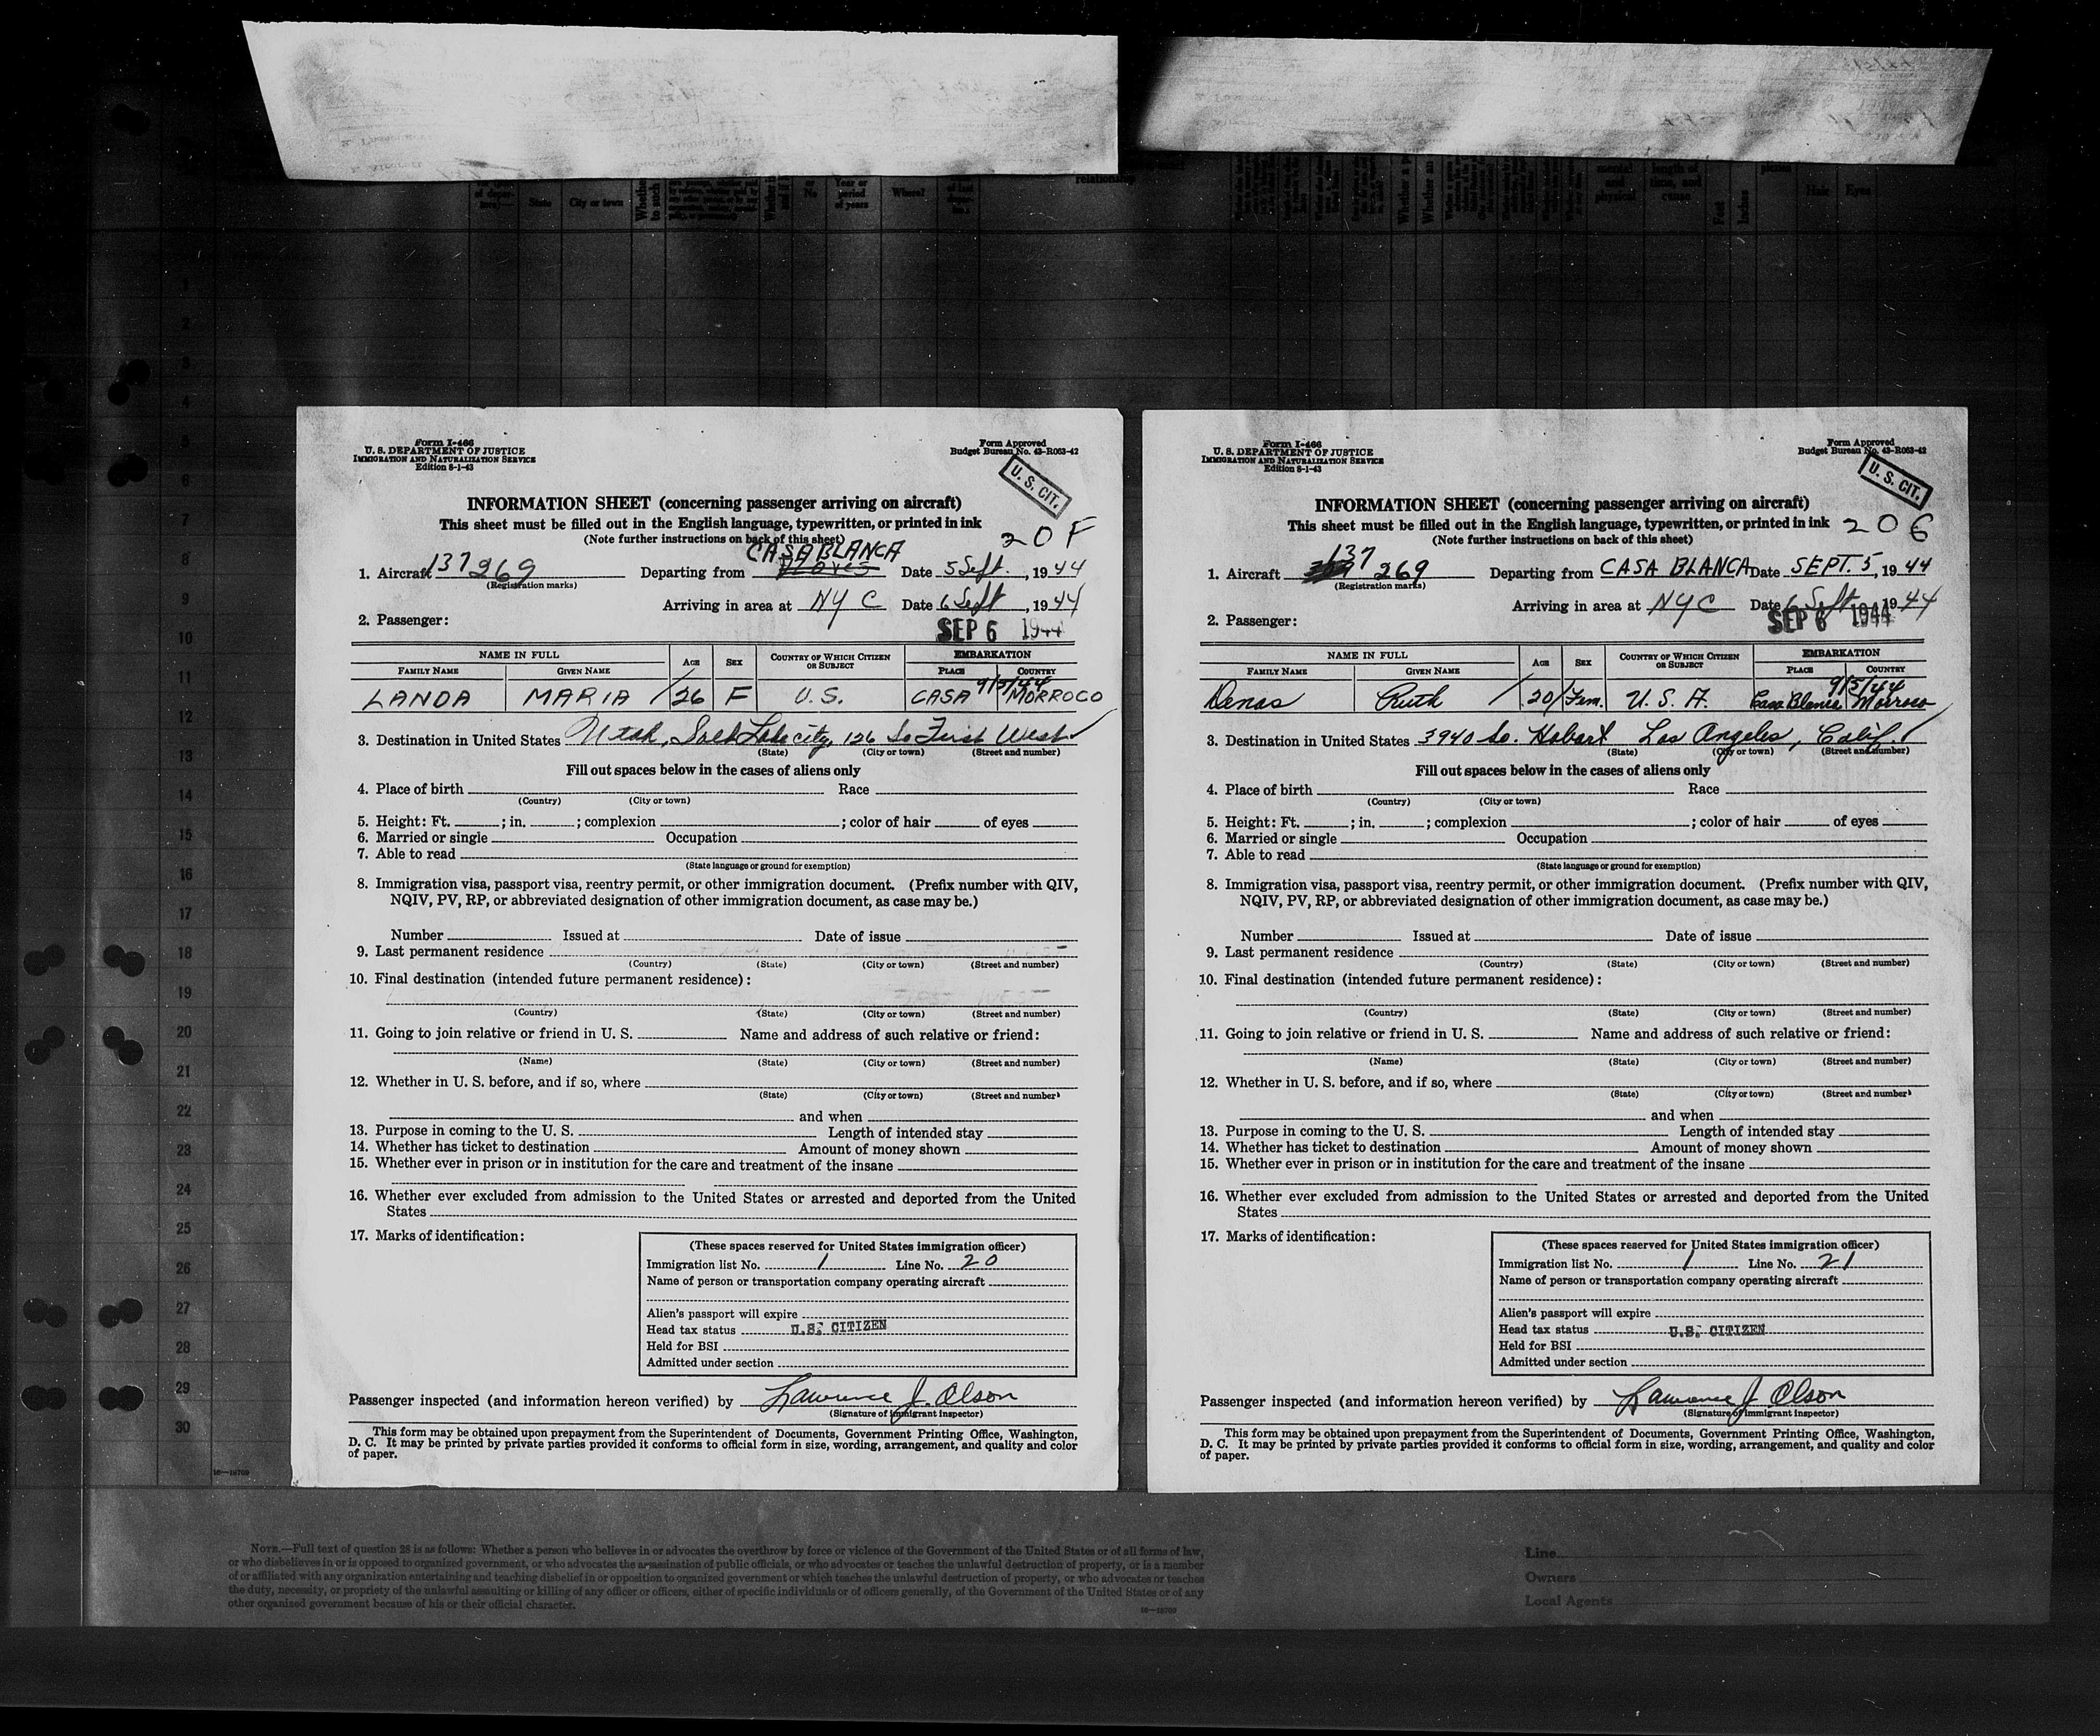 of depar-
ture)—
State
City or town
Whether
to such
No
Year or
period
of years
Where?
relationship
mental
and
physical
length of
time, and
cause
Feet
Inches
Hair
Eyes
1
2
3
4
5
6
7
8
9
10
11
12
13
14
15
16
17
18
19
20
21
22
23
24
25
26
27
28
29
30
16—18709
Form I-466
U. S. DEPARTMENT OF JUSTICE
IMMIGRATION AND NATURALIZATION SERVICE
Edition 8-1-43
Form Approved
Budget Bureau No. 43-R063-42
U. S. CIT.
INFORMATION SHEET (concerning passenger arriving on aircraft)
This sheet must be filled out in the English language, typewritten, or printed in ink
(Note further instructions on back of this sheet)
20 F
CASABLANCA
1. Aircraft 137269 Departing from Date 5 Sept. , 1944
(Registration marks)
Arriving in area at NYC Date 6 Sept , 1944
2. Passenger:
SEP 6 1944
NAME IN FULL AGE SEX COUNTRY OF WHICH CITIZEN OR SUBJECT EMBARKATION
FAMILY NAME GIVEN NAME PLACE COUNTRY
9/5/44
LANDA MARIA / 26 F U.S. CASA MORROCO
3. Destination in United States Utah, Salt Lake city, 126 So First West
(State) (City or town) (Street and number)
Fill out spaces below in the cases of aliens only
4. Place of birth Race
(Country) (City or town)
5. Height: Ft. ; in. ; complexion ; color of hair of eyes
6. Married or single Occupation
7. Able to read
(State language or ground for exemption)
8. Immigration visa, passport visa, reentry permit, or other immigration document. (Prefix number with QIV,
NQIV, PV, RP, or abbreviated designation of other immigration document, as case may be.)
Number Issued at Date of issue
9. Last permanent residence
(Country) (State) (City or town) (Street and number)
10. Final destination (intended future permanent residence):
FIRST WEST
(Country) (State) (City or town) (Street and number)
11. Going to join relative or friend in U. S. Name and address of such relative or friend:
(Name) (State) (City or town) (Street and number)
12. Whether in U. S. before, and if so, where
(State) (City or town) (Street and number)
and when
13. Purpose in coming to the U. S. Length of intended stay
14. Whether has ticket to destination Amount of money shown
15. Whether ever in prison or in institution for the care and treatment of the insane
16. Whether ever excluded from admission to the United States or arrested and deported from the United
States
17. Marks of identification:
(These spaces reserved for United States immigration officer)
Immigration list No. 1 Line No. 20
Name of person or transportation company operating aircraft
Alien's passport will expire
Head tax status U.S. CITIZEN
Held for BSI
Admitted under section
Passenger inspected (and information hereon verified) by Lawrence J. Olson
(Signature of immigrant inspector)
This form may be obtained upon prepayment from the Superintendent of Documents, Government Printing Office, Washington,
D. C. It may be printed by private parties provided it conforms to official form in size, wording, arrangement, and quality and color
of paper.
Form I-466
U. S. DEPARTMENT OF JUSTICE
IMMIGRATION AND NATURALIZATION SERVICE
Edition 8-1-43
Form Approved
Budget Bureau No. 43-R063-42
U. S. CIT.
INFORMATION SHEET (concerning passenger arriving on aircraft)
This sheet must be filled out in the English language, typewritten, or printed in ink
(Note further instructions on back of this sheet)
20G
1. Aircraft 137 269 Departing from CASA BLANCA Date SEPT. 5, 1944
(Registration marks)
Arriving in area at NYC Date 6 Sept 1944
2. Passenger:
SEP 6 1944
NAME IN FULL AGE SEX COUNTRY OF WHICH CITIZEN OR SUBJECT EMBARKATION
FAMILY NAME GIVEN NAME PLACE COUNTRY
9/5/44
Denas Ruth / 20/ Fem. U. S. A. Casa Blanca Morroco
3. Destination in United States 3940 So. Hobart Los Angeles, Calif.
(State) (City or town) (Street and number)
Fill out spaces below in the cases of aliens only
4. Place of birth Race
(Country) (City or town)
5. Height: Ft. ; in. ; complexion ; color of hair of eyes
6. Married or single Occupation
7. Able to read
(State language or ground for exemption)
8. Immigration visa, passport visa, reentry permit, or other immigration document. (Prefix number with QIV,
NQIV, PV, RP, or abbreviated designation of other immigration document, as case may be.)
Number Issued at Date of issue
9. Last permanent residence
(Country) (State) (City or town) (Street and number)
10. Final destination (intended future permanent residence):
(Country) (State) (City or town) (Street and number)
11. Going to join relative or friend in U. S. Name and address of such relative or friend:
(Name) (State) (City or town) (Street and number)
12. Whether in U. S. before, and if so, where
(State) (City or town) (Street and number)
and when
13. Purpose in coming to the U. S. Length of intended stay
14. Whether has ticket to destination Amount of money shown
15. Whether ever in prison or in institution for the care and treatment of the insane
16. Whether ever excluded from admission to the United States or arrested and deported from the United
States
17. Marks of identification:
(These spaces reserved for United States immigration officer)
Immigration list No. 1 Line No. 21
Name of person or transportation company operating aircraft
Alien's passport will expire
Head tax status U.S. CITIZEN
Held for BSI
Admitted under section
Passenger inspected (and information hereon verified) by Lawrence J. Olson
(Signature of immigrant inspector)
This form may be obtained upon prepayment from the Superintendent of Documents, Government Printing Office, Washington,
D. C. It may be printed by private parties provided it conforms to official form in size, wording, arrangement, and quality and color
of paper.
NOTE.—Full text of question 28 is as follows: Whether a person who believes in or advocates the overthrow by force or violence of the Government of the United States or of all forms of law,
or who disbelieves in or is opposed to organized government, or who advocates the assassination of public officials, or who advocates or teaches the unlawful destruction of property, or is a member
of or affiliated with any organization entertaining and teaching disbelief in or opposition to organized government or which teaches the unlawful destruction of property, or who advocates or teaches
the duty, necessity, or propriety of the unlawful assaulting or killing of any officer or officers, either of specific individuals or of officers generally, of the Government of the United States or of any
other organized government because of his or their official character.
16—18709
Line
Owners
Local Agents